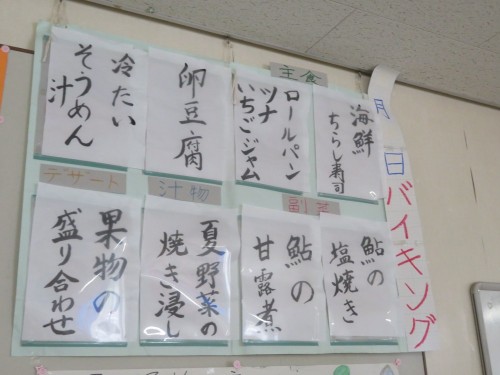 月 日 バイキング
主食
海鮮
ちらし寿司
ロールパン
ツナ
いちごジャム
卵豆腐
冷たい
そうめん
汁
副菜
鮎の
塩焼き
鮎の
甘露煮
汁物
夏野菜の
焼き浸し
デザート
果物の
盛り合わせ